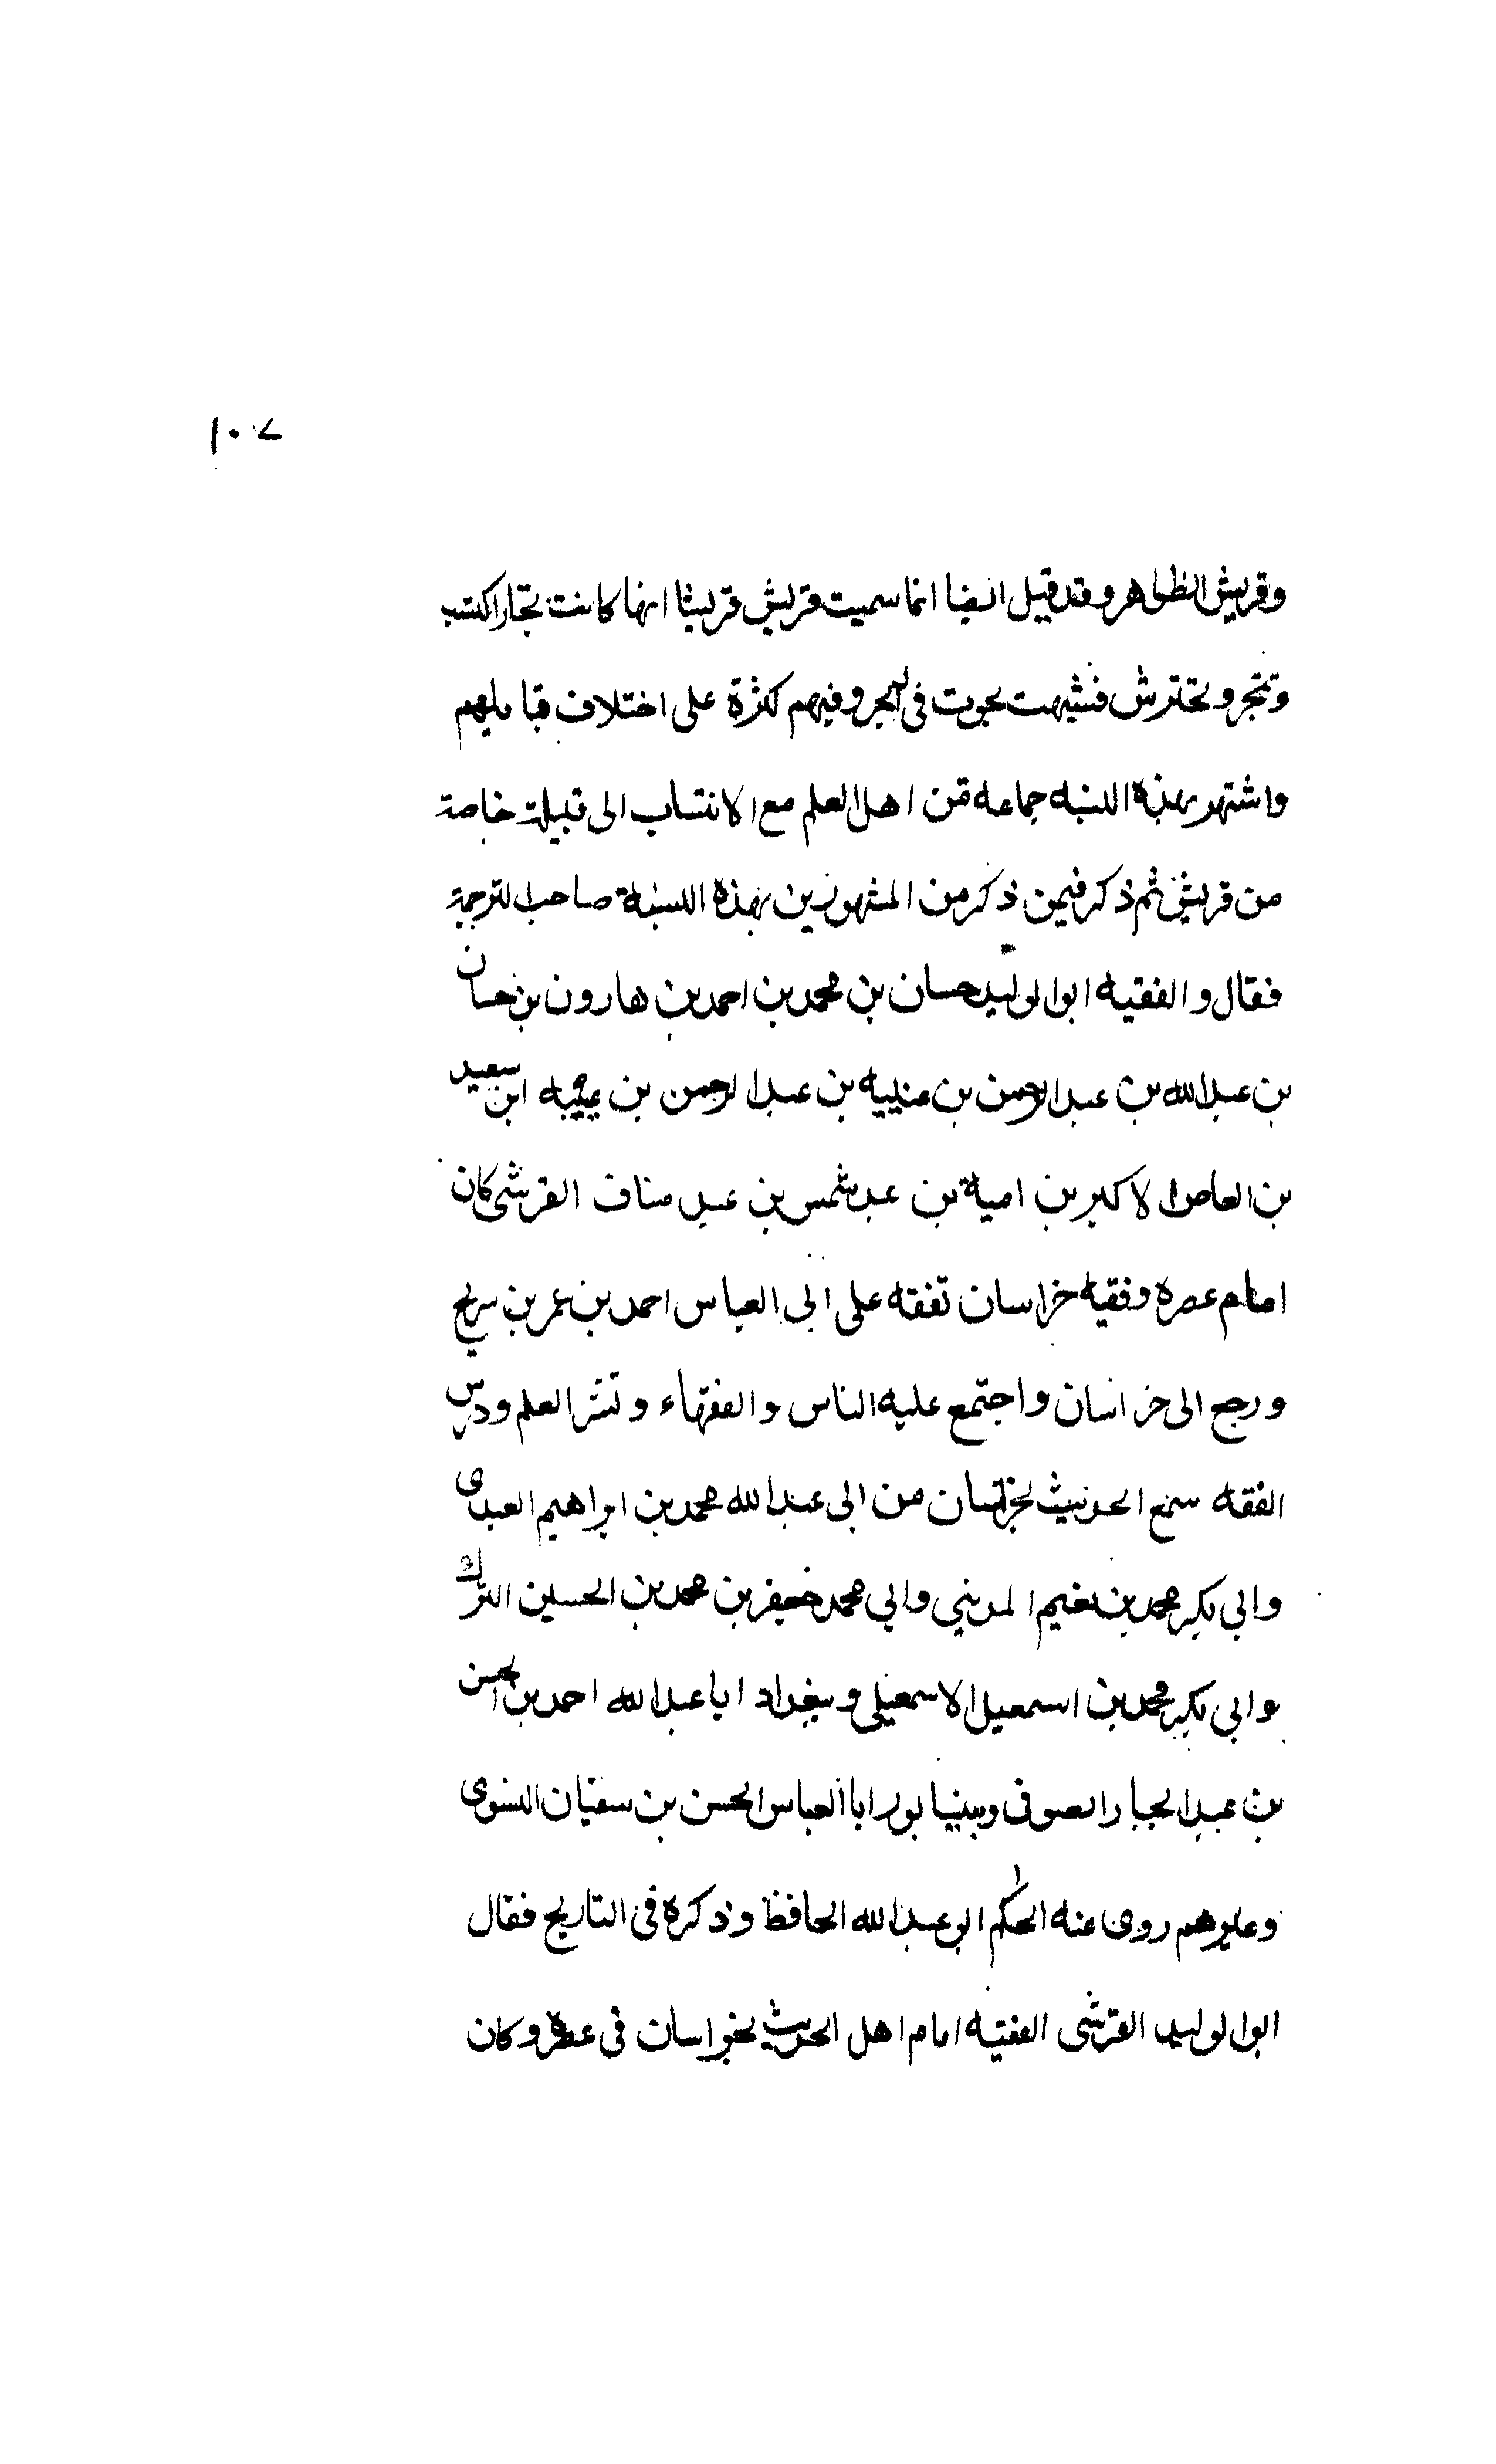 ١٠٧
وقريش الظواهر وقد قيل ايضا انما سميت قريش قريشا انها كانت تجارا تكتسب
وتتجر وتحترش فشبهت بحوت فى البحر وفيهم كثرة على اختلاف قبايلهم
واشتهر بهذه النسبه جماعه من اهل العلم مع الانتساب الى قبيلة خاصة
من قريش ثم ذكر فيمن ذكر من المشهورين بهذه النسبة صاحب الترجمة
فقال والفقيه ابو الوليد حسان بن محمد بن احمد بن هارون بن حسان
بن عبد الله بن عبد الرحمن بن عنبسه بن عبد الرحمن بن عنبسه ابن سعيد
بن العاص الاكبر بن امية بن عبد شمس بن عبد مناف القرشى كان
امام عصره وفقيه خراسان تفقه على ابى العباس احمد بن عمر بن سريج
ورجع الى خراسان واجتمع عليه الناس والفقهاء ونشر العلم ودرس
الفقه سمع الحديث بخراسان من ابى عبد الله محمد بن ابراهيم العبدى
وابى بكر محمد بن نعيم المدينى وابى محمد جعفر بن محمد بن الحسين الترك
وابى بكر محمد بن اسمعيل الاسمعيلى وببغداد ابا عبد الله احمد بن الحسن
بن عبد الجبار الصوفى وبنيسابور ابا العباس الحسن بن سفيان النسوى
وغيرهم روى عنه الحاكم ابو عبد الله الحافظ وذكره فى التاريخ فقال
ابو الوليد القرشى الفقيه امام اهل الحديث بخراسان فى عصره وكان